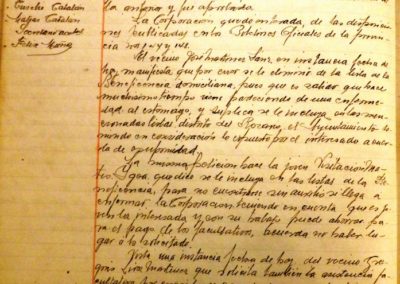 Eusebio Catalan
Rafael Catalan
Secretario acctal
Felix Muñoz
la anterior y fue aprobada.
La Corporación quedó enterada, de las disposicio
nes publicadas en los Boletines Oficiales de la Provin
cia
El vecino José Martinez Sanz, en instancia fecha de
hoy, manifiesta, que por error se le eliminó de la lista de la
Beneficencia domiciliaria, pues que es sabido que hace
muchisimo tiempo viene padeciendo de una enferme
dad al estomago, y suplica se le incluya en las men
cionadas listas, distrito del Rosario, el Ayuntamiento to
mando en consideración lo expuesto por el interesado acuer
da de conformidad.
La misma petición hace la joven Visitación
que pide se le incluya en las listas de la Be
neficencia, para no encontrarse sin auxilio si llega a
enfermar, la Corporación teniendo en cuenta que es jo
ven la interesada y con su trabajo puede ahorrar pa
ra el pago de los facultativos, acuerda no haber lu
gar á lo solicitado.
Vista una instancia fecha de hoy, del vecino Gre
gorio Martinez que solicita tambien la asistencia fa
cultativa